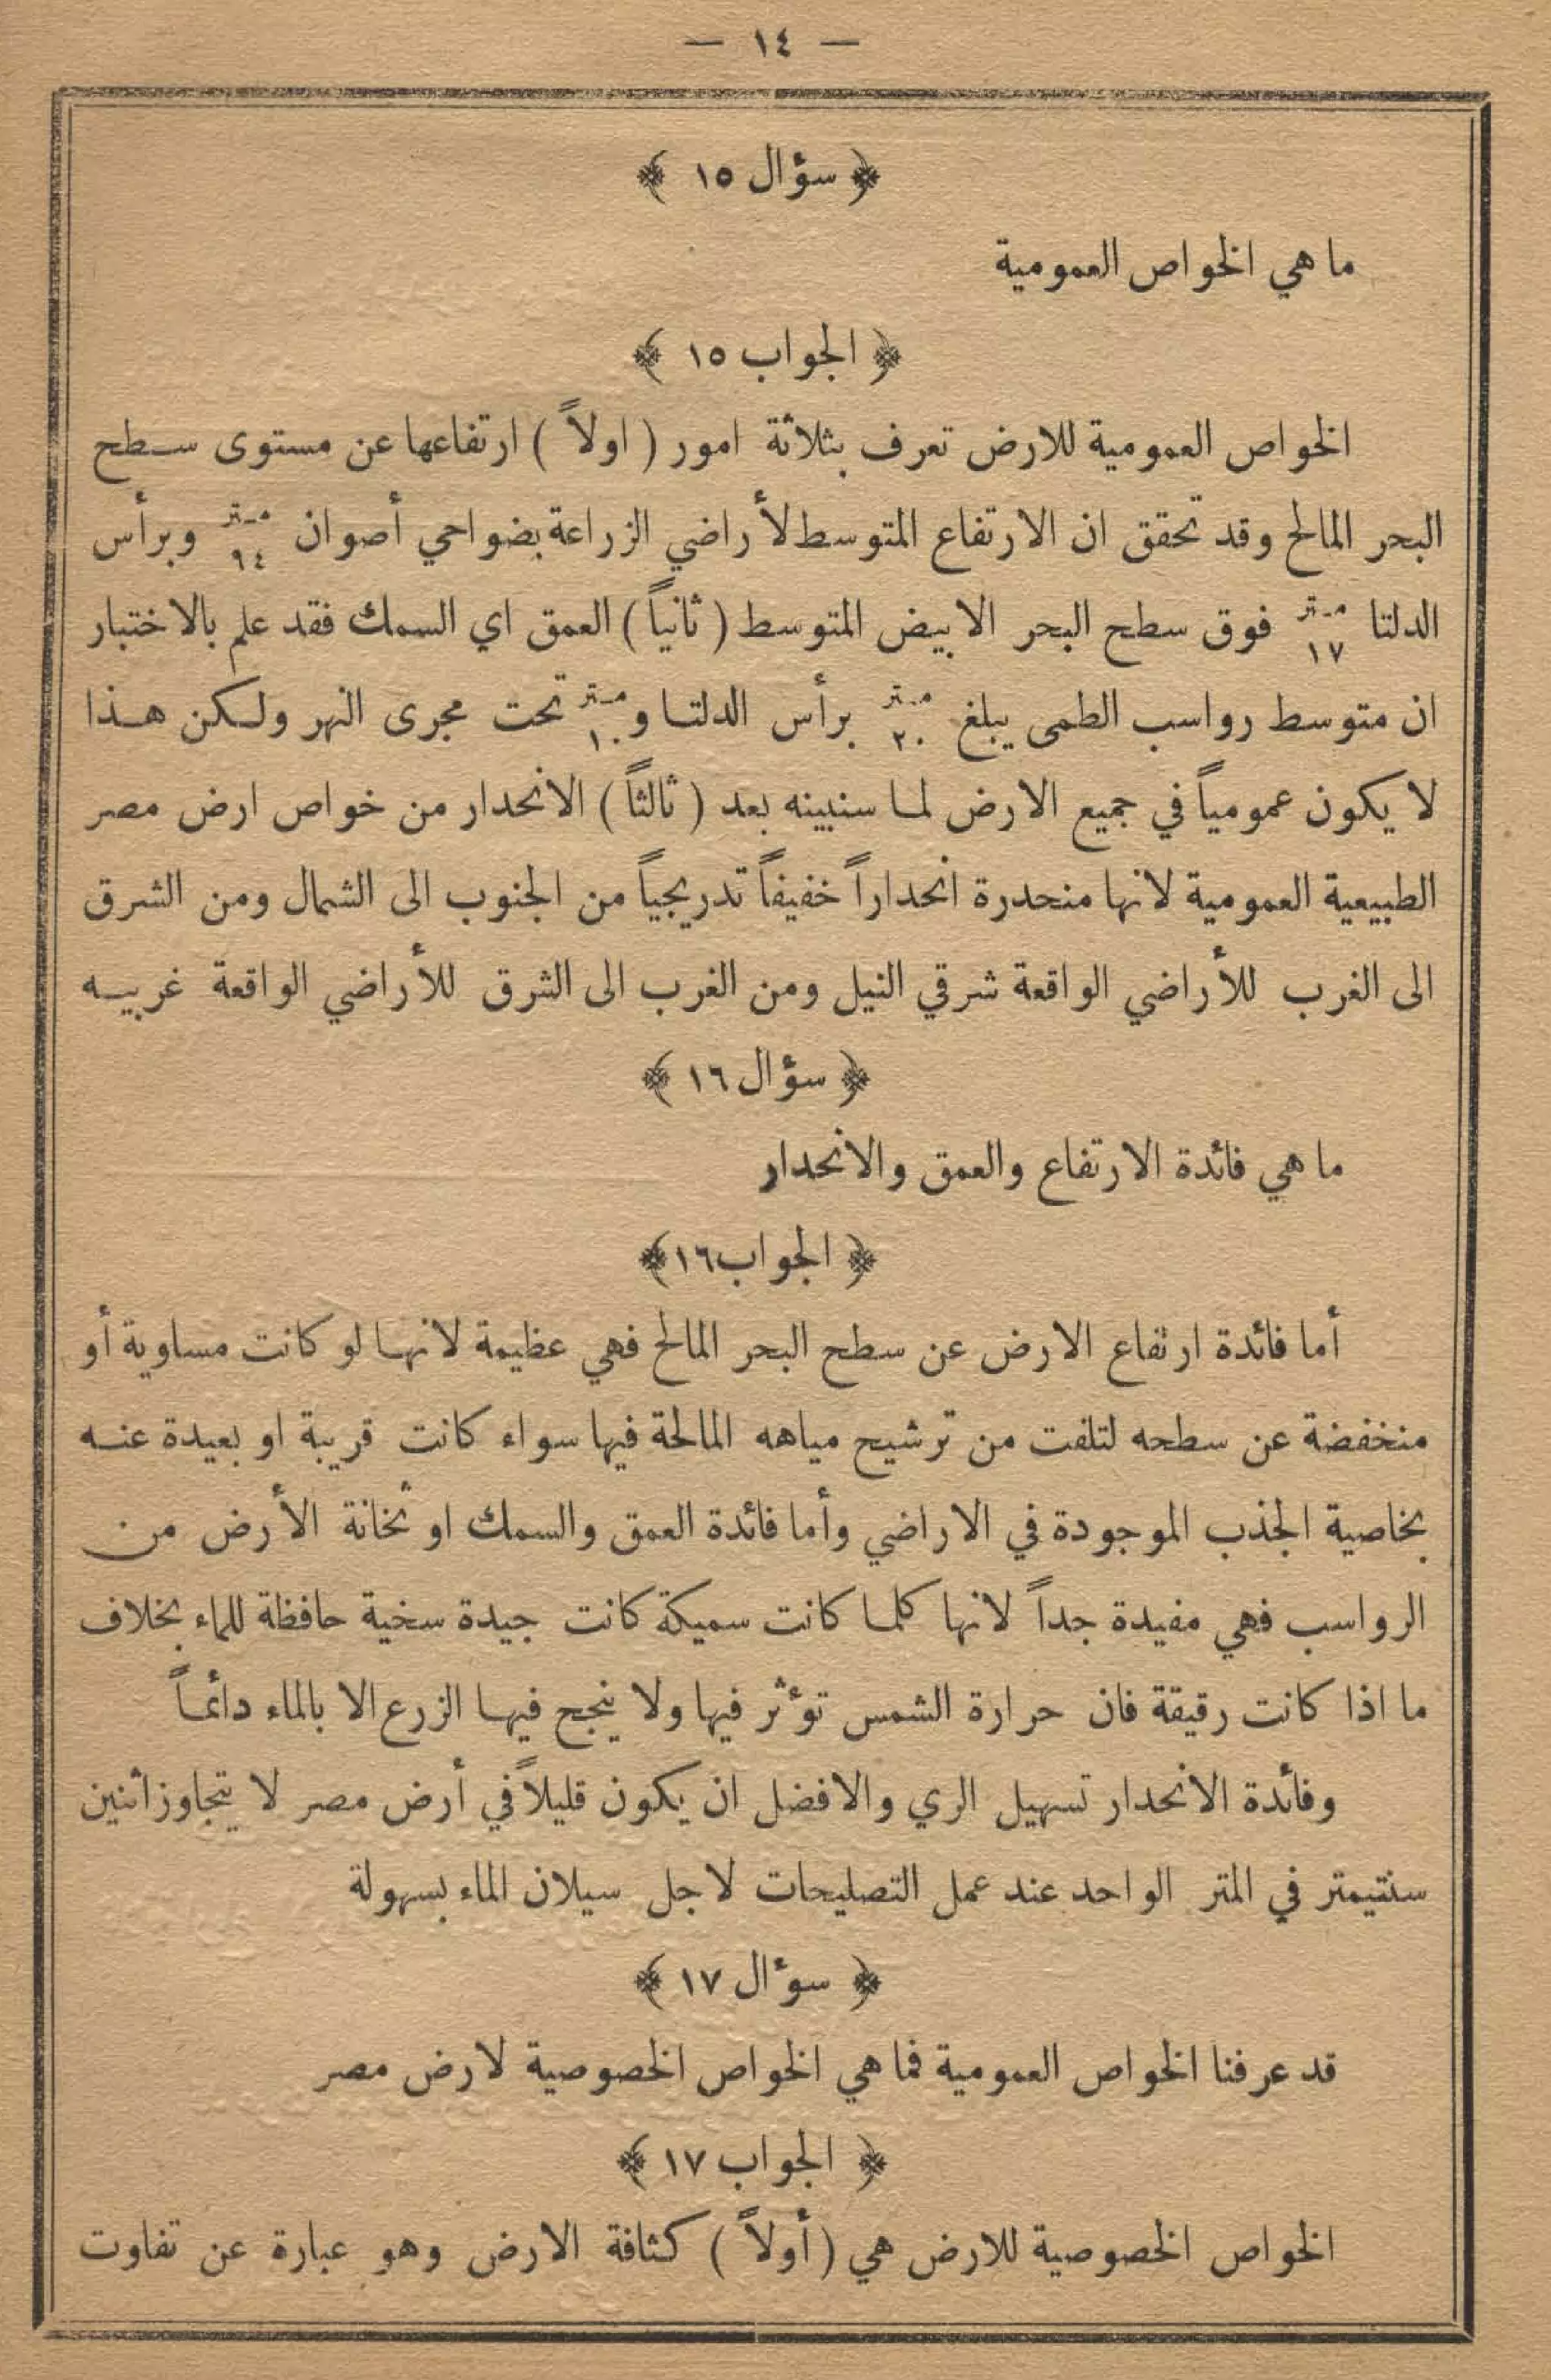 — ١٤ —
﴿ سؤال ١٥ ﴾
ما هي الخواص العمومية
﴿ الجواب ١٥ ﴾
الخواص العمومية للارض تعرف بثلاثة امور ( اولاً ) ارتفاعها عن مستوى سطح
البحر المالح وقد تحقق ان الارتفاع المتوسط لأراضي الزراعة بضواحي أصوان ٩٤ متر وبرأس
الدلتا ١٧ متر فوق سطح البحر الابيض المتوسط ( ثانياً ) العمق اي السمك فقد علم بالاختبار
ان متوسط رواسب الطمى يبلغ ٢٠ متر برأس الدلتا و ١٠ متر تحت مجرى النهر ولكن هذا
لا يكون عمومياً في جميع الارض لما سنبينه بعد ( ثالثاً ) الانحدار من خواص ارض مصر
الطبيعية العمومية لانها منحدرة انحداراً خفيفاً تدريجياً من الجنوب الى الشمال ومن الشرق
الى الغرب للأراضي الواقعة شرقي النيل ومن الغرب الى الشرق للأراضي الواقعة غربيه
﴿ سؤال ١٦ ﴾
ما هي فائدة الارتفاع والعمق والانحدار
﴿ الجواب ١٦ ﴾
أما فائدة ارتفاع الارض عن سطح البحر المالح فهي عظيمة لانها لو كانت مساوية أو
منخفضة عن سطحه لتلفت من ترشيح مياهه المالحة فيها سواء كانت قريبة او بعيدة عنه
بخاصية الجذب الموجودة في الاراضي وأما فائدة العمق والسمك او ثخانة الأرض من
الرواسب فهي مفيدة جداً لانها كلما كانت سميكة كانت جيدة سخية حافظة للماء بخلاف
ما اذا كانت رقيقة فان حرارة الشمس تؤثر فيها ولا ينجح فيها الزرع الا بالماء دائماً
وفائدة الانحدار تسهيل الري والافضل ان يكون قليلاً في أرض مصر لا يتجاوز أثنين
سنتيمتر في المتر الواحد عند عمل التصليحات لاجل سيلان الماء بسهولة
﴿ سؤال ١٧ ﴾
قد عرفنا الخواص العمومية فما هي الخواص الخصوصية لارض مصر
﴿ الجواب ١٧ ﴾
الخواص الخصوصية للارض هي ( أولاً ) كثافة الارض وهو عبارة عن تفاوت